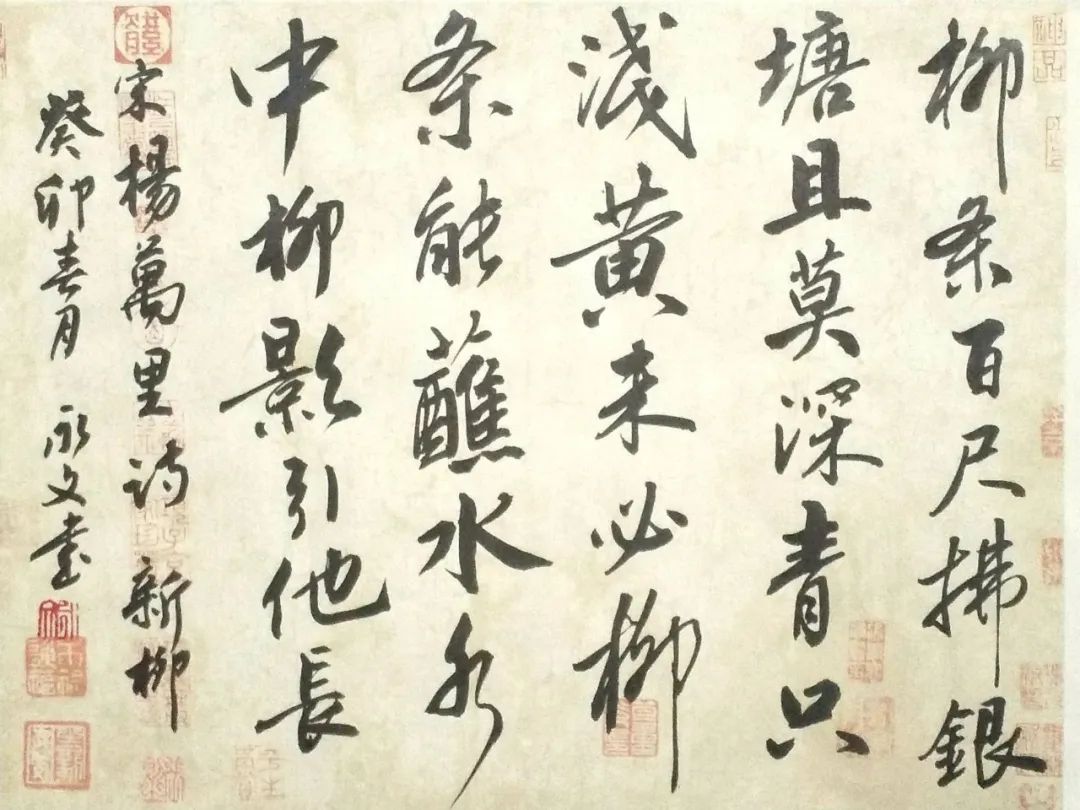 柳条百尺拂銀
塘且莫深青只
浅黄未必柳
条能蘸水水
中柳影引他長
宋楊萬里诗新柳
癸卯春月永文书